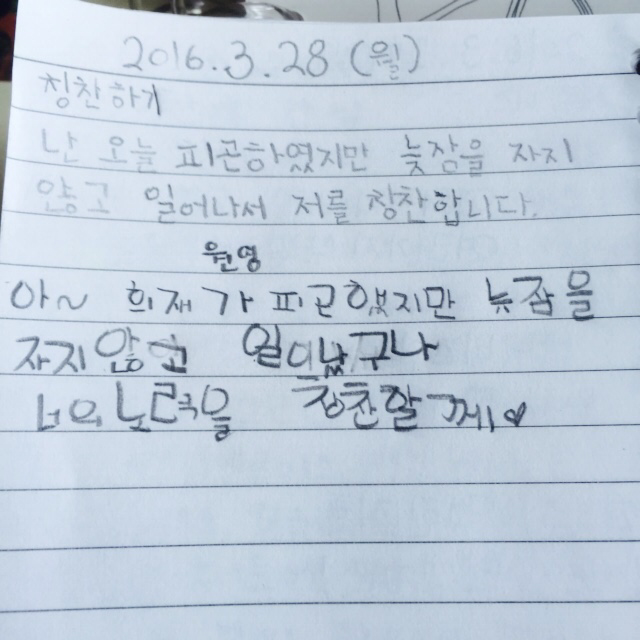 2016.3.28(월)
칭찬하기
난 오늘 피곤하였지만 늦장을 자지
않고 일어나서 저를 칭찬합니다.
원영
아~ 희재가 피곤했지만 늦잠을
자지않고 일어났구나
너의 노력을 칭찬할게♥